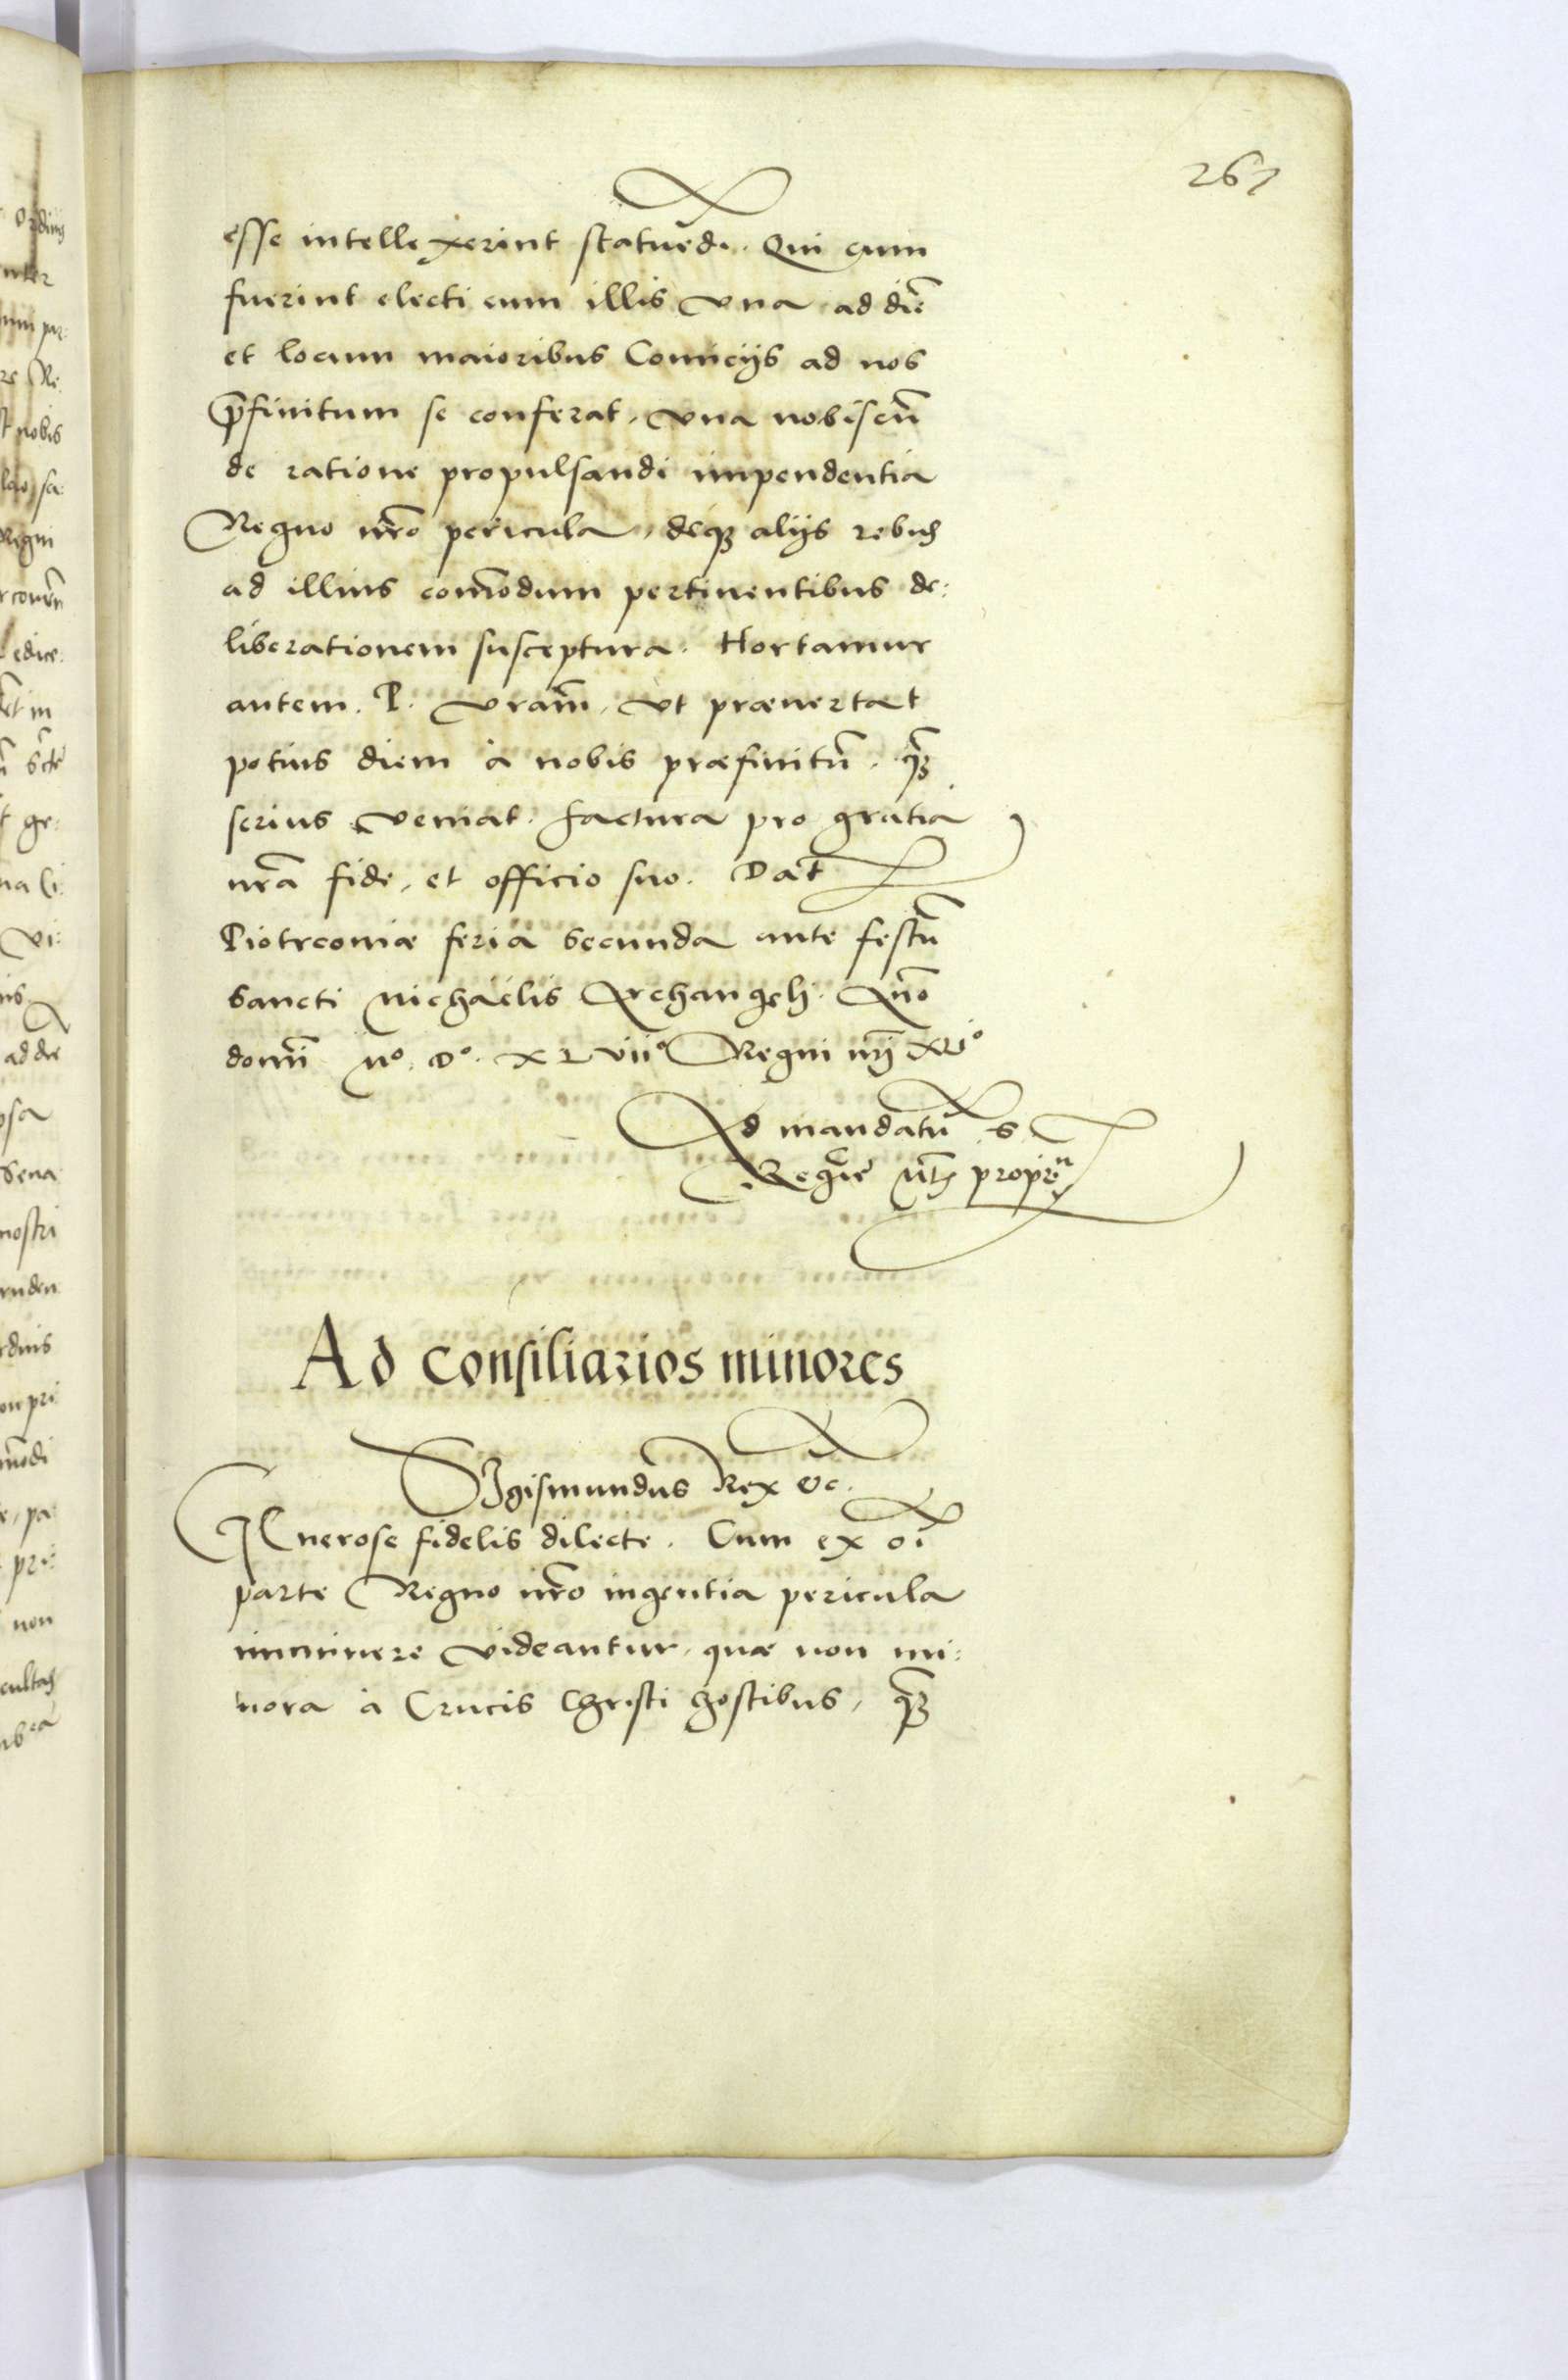 267
esse intellexerint statuēdi. Qui cum
fuerint electi cum illis vna ad diē
et locum maioribus Comicijs ad nos
p̄finitum se conferat, vna nobiscū
de ratione propulsandi impendentia
Regno nr̄o pericula, deq; alijs rebus
ad illius com̄odum pertinentibus de:
liberationem susceptura. Hortamur
autem. P. vram̄, vt præuertat
potius diem à nobis præfinitū, q̄
serius veniat. factura pro gratia
nr̄a fide, et officio suo. Dat̄
Piotrconiæ feria secunda ante festū
sancti Michaëlis Archangeli. Anno
domī M.° D.° XLVii° Regni nr̄j XLi°
Ad mandatū S
Regiæ mt̄s propr̄
Ad consiliarios minores
Sigismundus Rex &c.
GEnerose fidelis dilecte. Cum ex oī
parte Regno nr̄o ingentia pericula
imminere videantur, quæ non mi:
nora à Crucis Christi hostibus, q̄